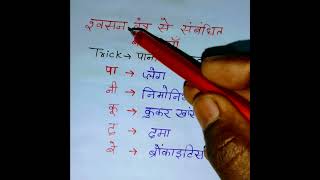 श्वसन तंत्र से संबंधित
Trick→ पान
पा → प्लेग
नी → निमोनि
कू → कूकर खां
द → दमा
बे → ब्रोंकाइटिस